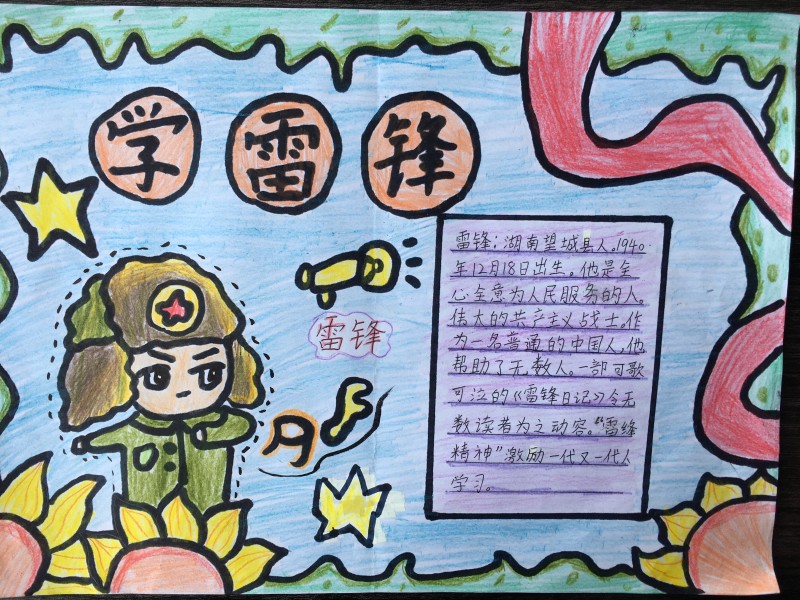 学雷锋
雷锋
月
雷锋：湖南望城县人。1940
年12月18日出生。他是全
心全意为人民服务的人。
伟大的共产主义战士。作
为一名普通的中国人，他
帮助了无数人。一部可歌
可泣的《雷锋日记》令无
数读者为之动容。“雷锋
精神”激励一代又一代人
学习。